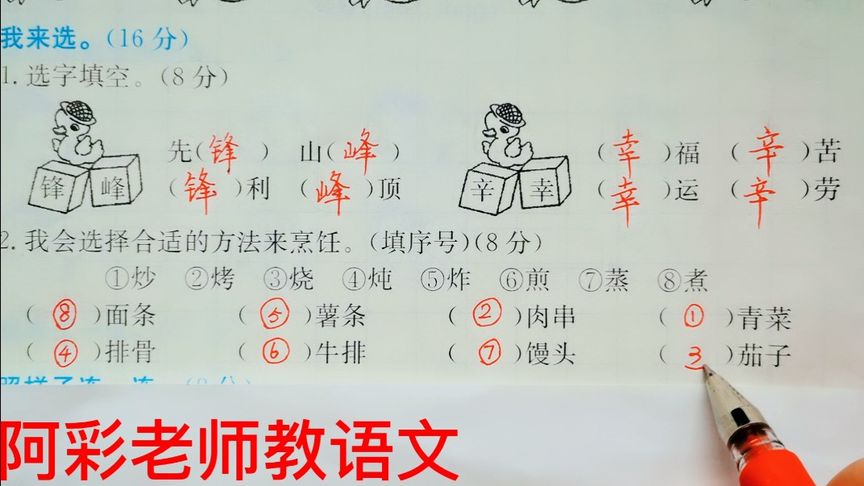 我来选。(16分)
1.选字填空。(8分)
先(锋)  山(峰)  (幸)福  (辛)苦
锋 峰 (锋)利  (峰)顶  辛 幸 (幸)运  (辛)劳
2.我会选择合适的方法来烹饪。(填序号)(8分)
①炒  ②烤  ③烧  ④炖  ⑤炸  ⑥煎  ⑦蒸  ⑧煮
(⑧)面条  (⑤)薯条  (②)肉串  (①)青菜
(④)排骨  (⑥)牛排  (⑦)馒头  (3)茄子
阿彩老师教语文